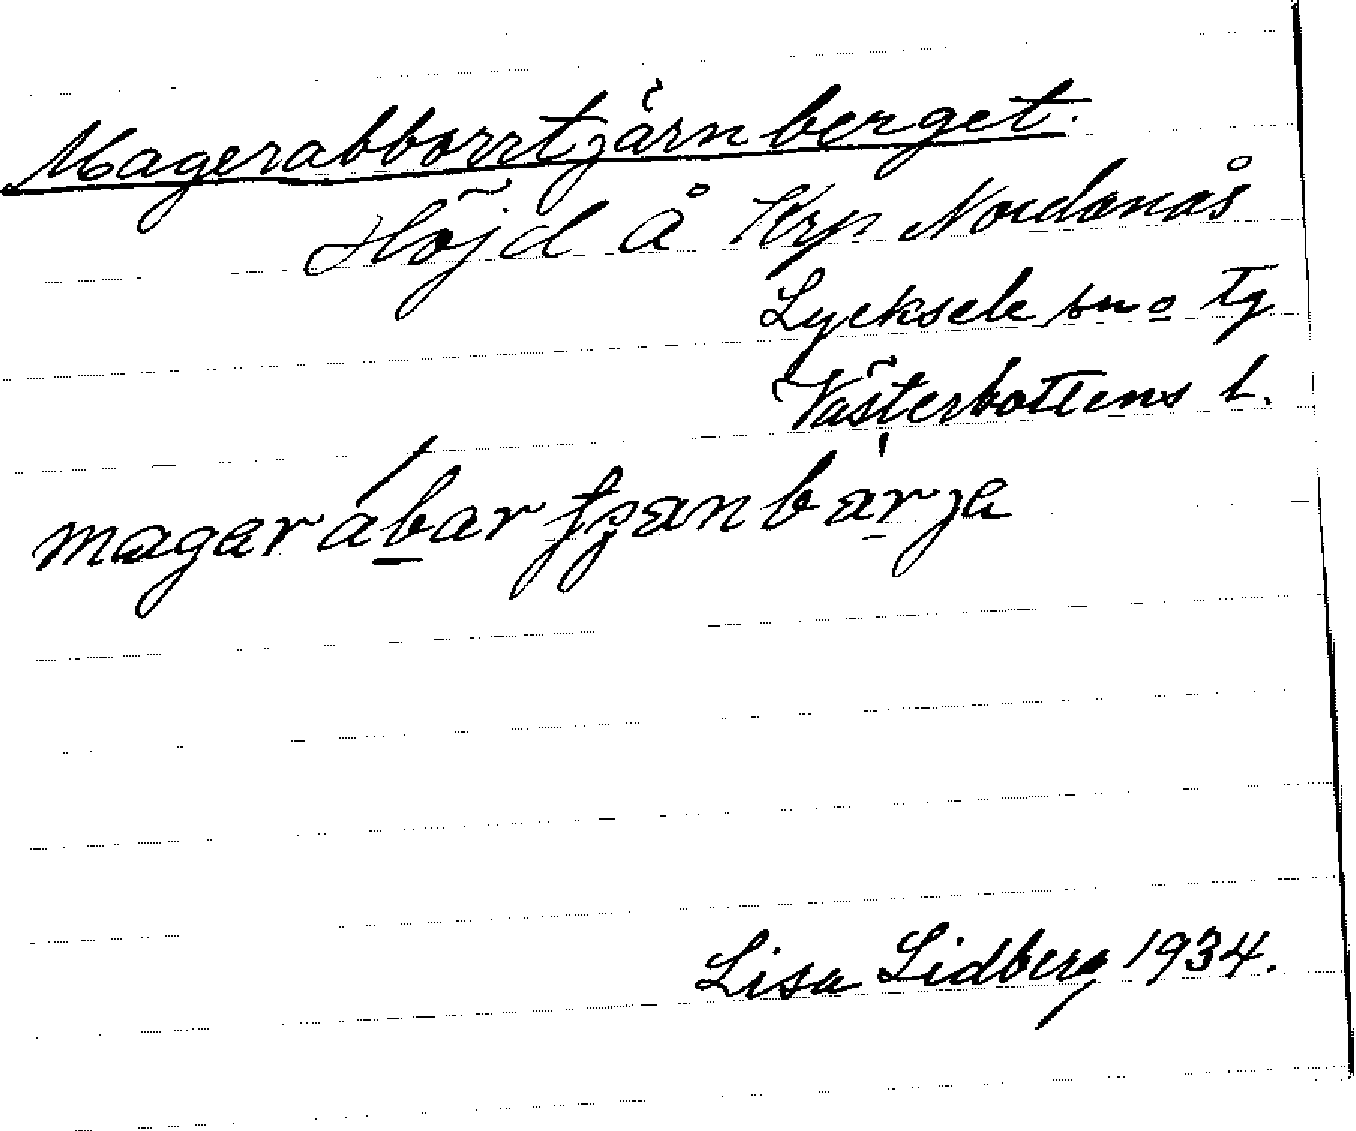 Magerabborrtjärnberget.
Höjd å Krp Nordanås
Lycksele sn o tg
Västerbottens l.
magarábartjanbarja
Lisa Lidberg 1934.